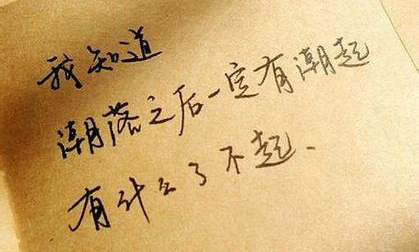 我知道
潮落之后一定有潮起
有什么了不起.